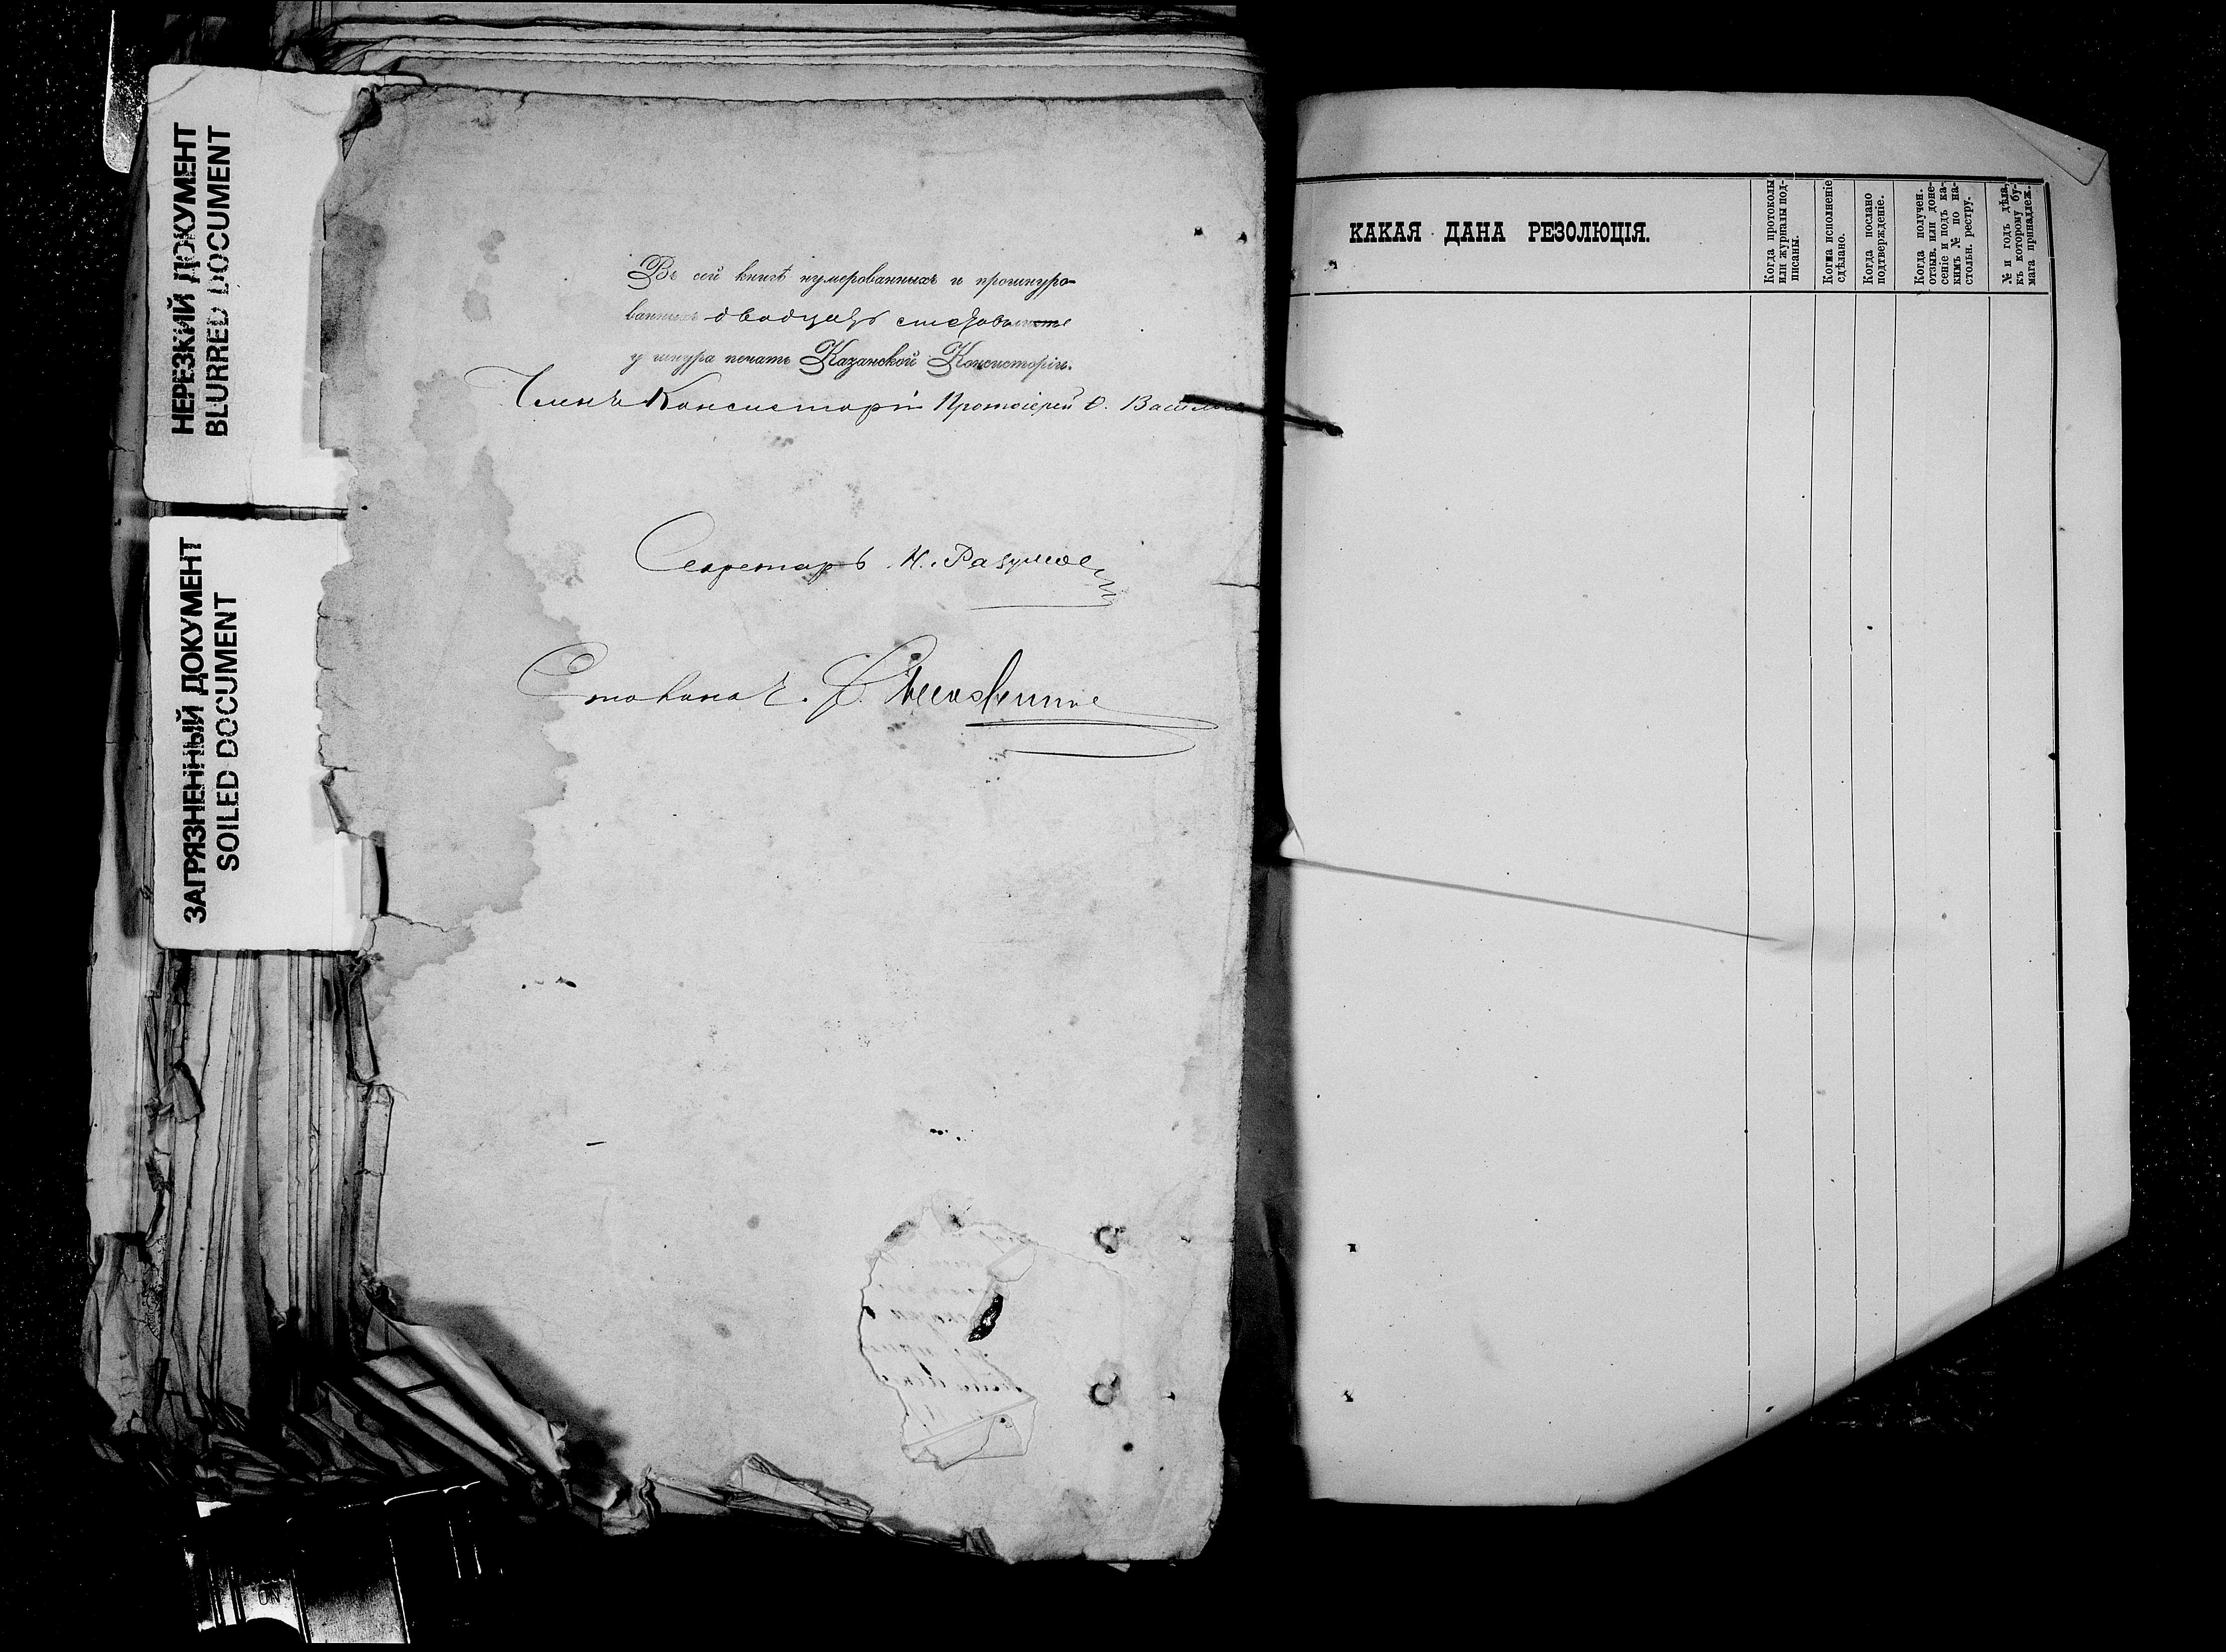 НЕРЕЗКИЙ ДОКУМЕНТ
BLURRED DOCUMENT
ЗАГРЯЗНЕННЫЙ ДОКУМЕНТ
SOILED DOCUMENT
Въ сей книгѣ нумерованныхъ и прошнуро-
ванныхъ двадцать листовъ
у шнура печать Казанской Консисторіи.
Членъ Консисторіи Протоіерей
Секретарь Н. Разумов
Столонач.
КАКАЯ ДАНА РЕЗОЛЮЦІЯ.
Когда протоколы
или журналы под-
писаны.
Когда исполненіе
сдѣлано.
Когда послано
подтвержденіе.
Когда получен.
отзыв. или доне-
сеніе и подъ ка-
кимъ № по на-
стольн. рестру.
№ и годъ дѣла,
къ которому бу-
мага принадлеж.
ON